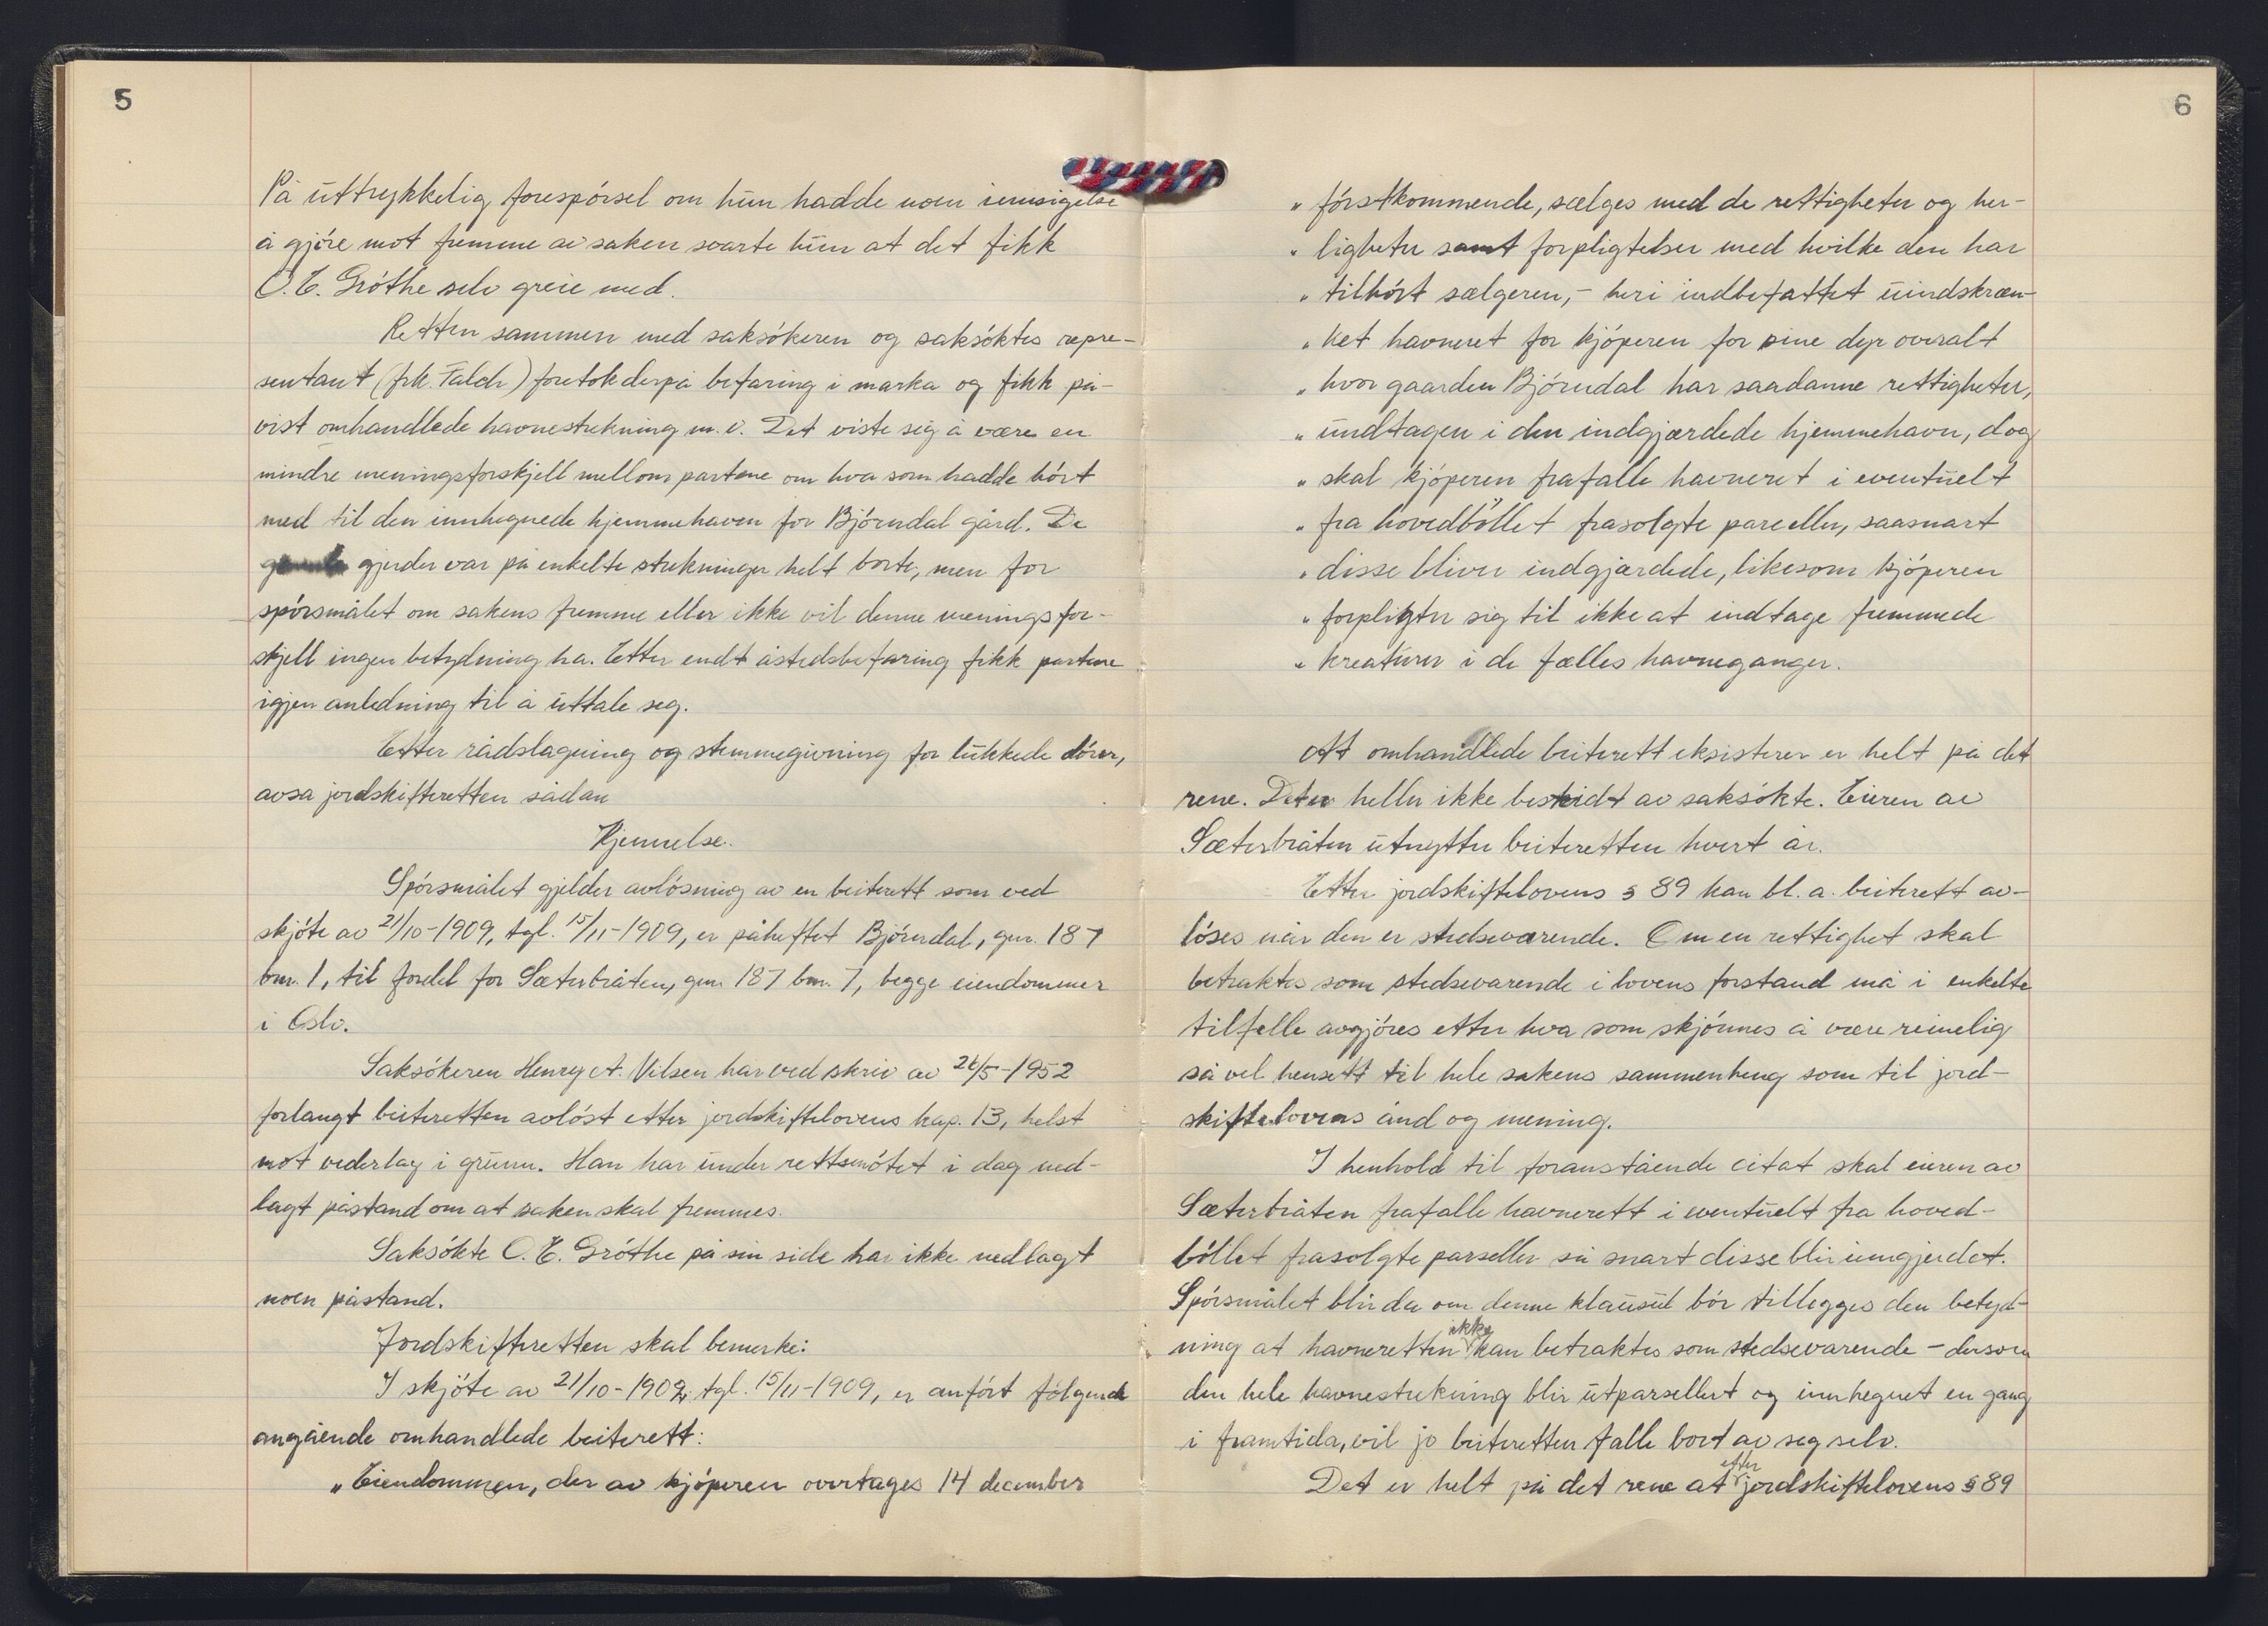 5
På uttrykkelig forespørsel om hun hadde noen innsigelse
å gjøre mot fremme av saken svarte hun at det fikk
O. E. Grøthe selv greie med.
Retten sammen med saksøkeren og saksøktes repre-
sentant (frk. Falch) foretok derpå befaring i marka og fikk på-
vist omhandlede havnestrekning m.v. Det viste sig å være en
mindre meningsforskjell mellom partene om hva som hadde hørt
med til den innhegnede hjemmehaven for Bjørndal gård. De
gjerder var på enkelte strekninger helt borte, men for
spørsmålet om sakens fremme eller ikke vil denne meningsfor-
skjell ingen betydning ha. Etter endt åstedsbefaring fikk partene
igjen anledning til å uttale seg.
Etter rådslagning og stemmegivning for lukkede dører,
avsa jordskifteretten sådan
Kjennelse.
Spørsmålet gjelder avløsning av en beiterett som ved
skjøte av 21/10-1909, tgl. 15/11-1909, er påheftet Bjørndal, gnr. 187
bnr. 1, til fordel for Sæterbråten, gnr. 187 bnr. 7, begge eiendommer
i Oslo.
Saksøkeren Henry A. Nilsen har ved skriv av 26/5-1952
forlangt beiteretten avløst etter jordskiftelovens kap. 13, helst
mot vederlag i grunn. Han har under rettsmøtet i dag ned-
lagt påstand om at saken skal fremmes.
Saksøkte O. E. Grøthe på sin side har ikke nedlagt
noen påstand.
Jordskifteretten skal bemerke:
I skjøte av 21/10-1909, tgl. 15/11-1909, er anført følgende
angående omhandlede beiterett:
„Eiendommen, der av kjøperen overtages 14 december
6
" førstkommende, sælges med de rettigheter og her-
" ligheter samt forpligtelser med hvilke den har
" tilhørt sælgeren, - heri indbefattet uindskræn-
" ket havneret for kjøperen for sine dyr overalt
" hvor gaarden Bjørndal har saadanne rettigheter,
" undtagen i den indgjærdede hjemmehavn, dog
" skal kjøperen frafalle havneret i eventuelt
" fra hovedbøllet frasolgte parceller, saasnart
" disse bliver indgjærdede, likesom kjøperen
" forpligter sig til ikke at indtage fremmede
" kreaturer i de fælles havneganger.
At omhandlede beiterett eksisterer er helt på det
rene. Det er heller ikke bestridt av saksøkte. Eieren av
Sæterbråten utnytter beiteretten hvert år.
Etter jordskiftelovens § 89 kan bl. a. beiterett av-
løses når den er stedsevarende. Om en rettighet skal
betraktes som stedsevarende i lovens forstand må i enkelte
tilfelle avgjøres etter hva som skjønnes å være rimelig
såvel hensett til hele sakens sammenheng som til jord-
skiftelovens ånd og mening.
I henhold til foranstående citat skal eieren av
Sæterbråten frafalle havnerett i eventuelt fra hoved-
bøllet frasolgte parseller så snart disse blir inngjerdet.
Spørsmålet blir da om denne klausul bør tillegges den betyd-
ning at havneretten ikke kan betraktes som stedsevarende - dersom
den hele havnestrekning blir utparsellert og innhegnet en gang
i framtida, vil jo beiteretten falle bort av seg selv.
Det er helt på det rene at etter jordskiftelovens § 89